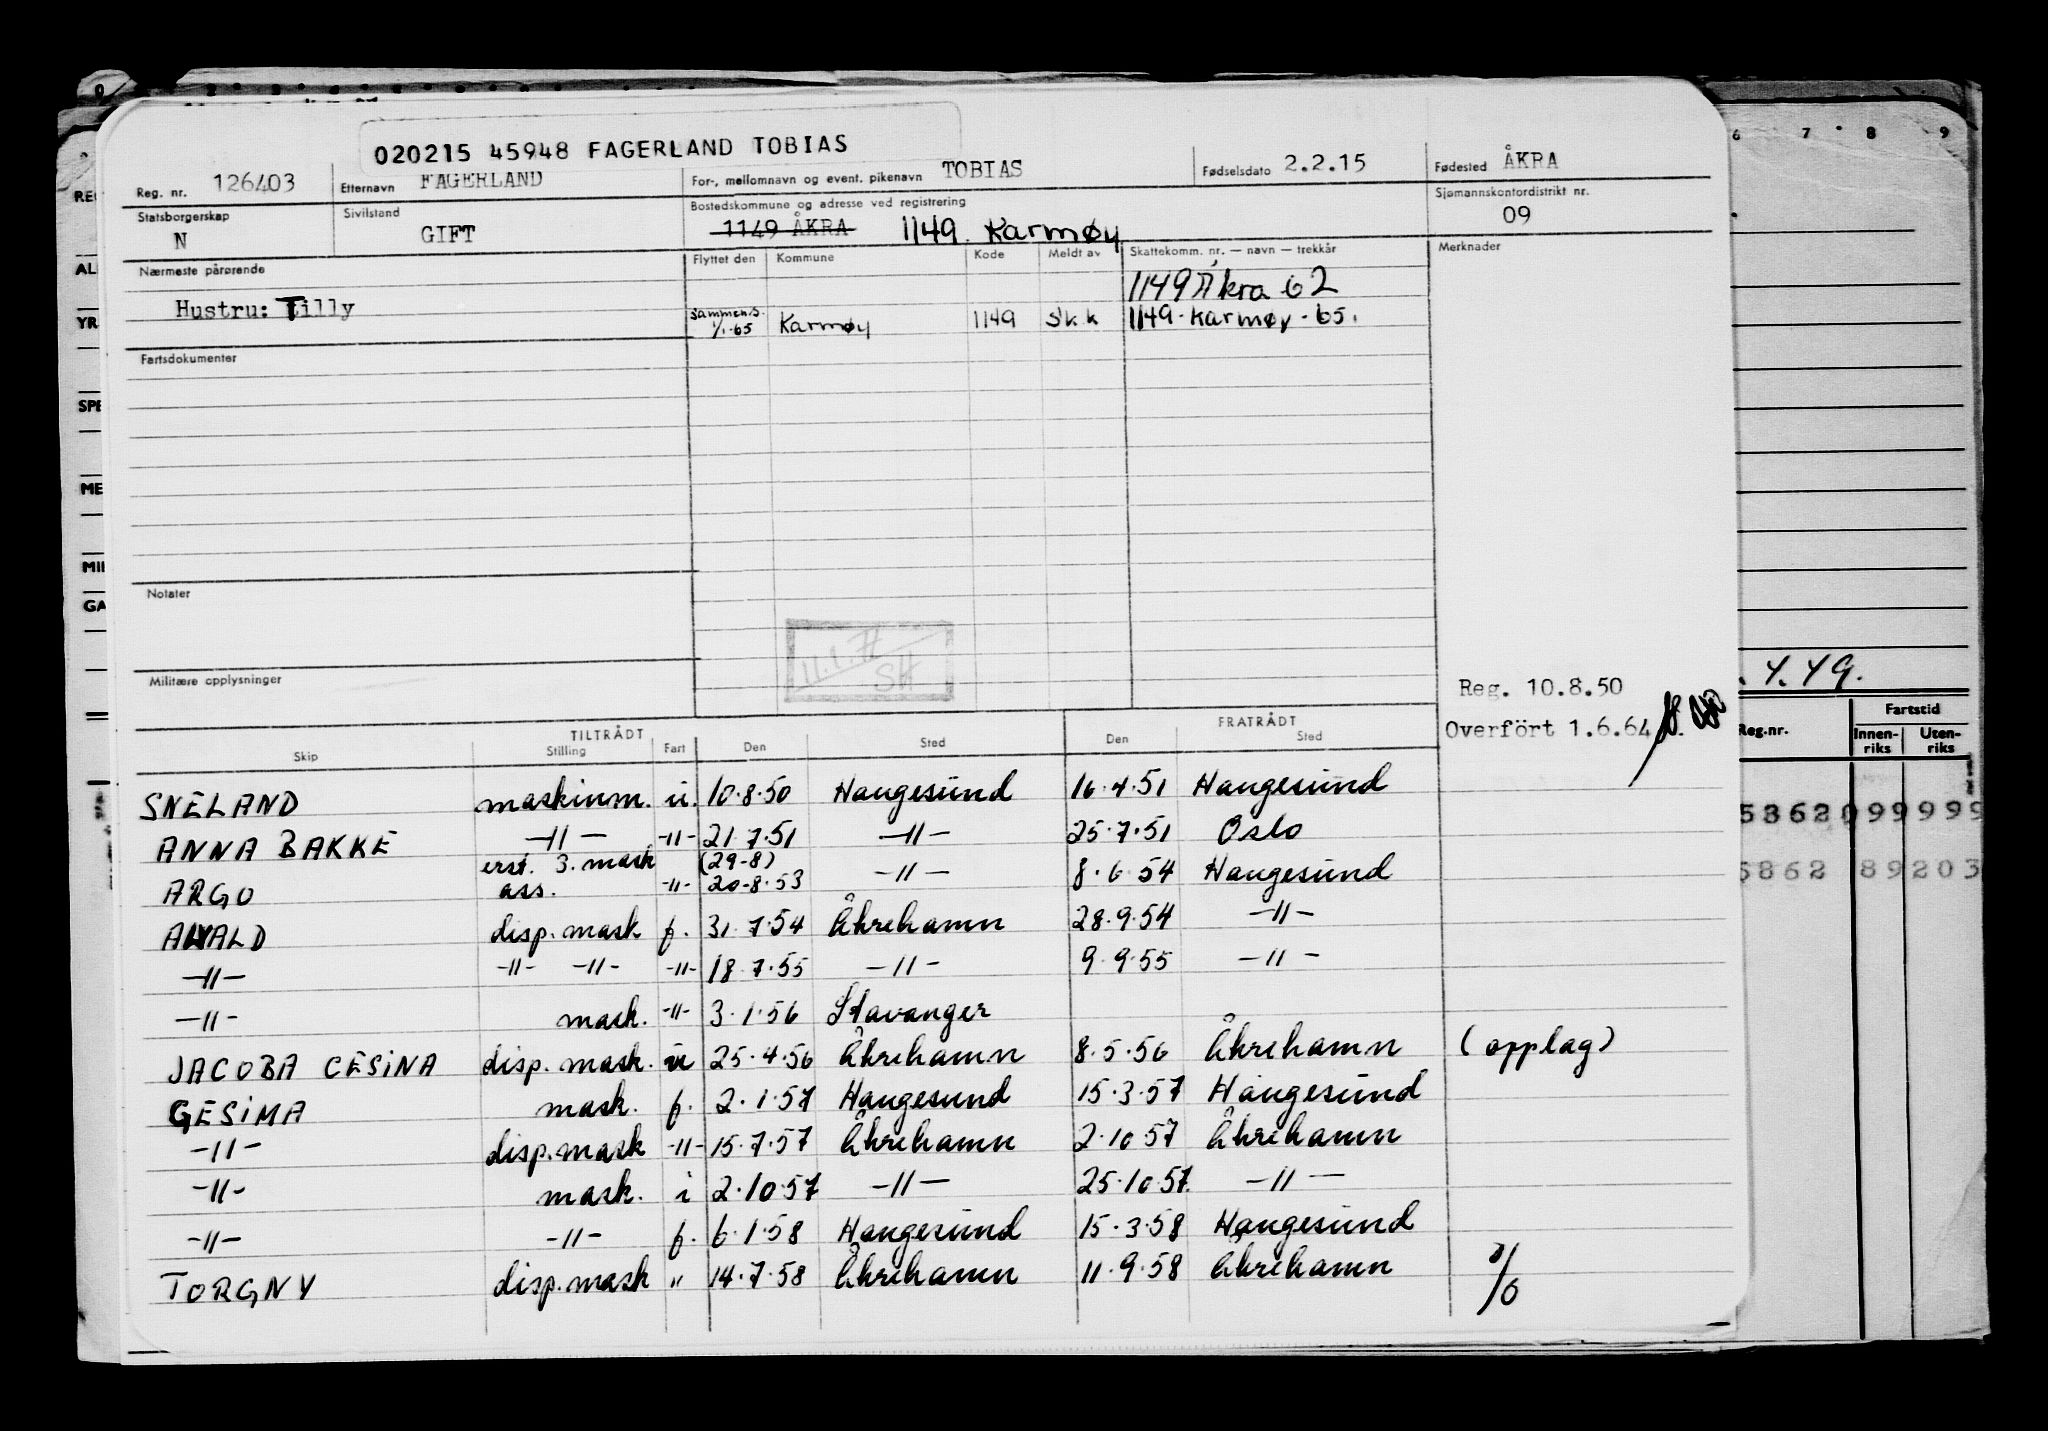 020215 45948 FAGERLAND TOBIAS
Reg. nr. 126403 Etternavn FAGERLAND For-, mellomnavn og event. pikenavn TOBIAS Fødselsdato 2.2.15 Fødested ÅKRA
Statsborgerskap N Sivilstand GIFT Bostedskommune og adresse ved registrering 1149 ÅKRA 1149. Karmøy Sjømannskontordistrikt nr. 09
Nærmeste pårørende Flyttet den Kommune Kode Meldt av Skattekomm. nr. — navn — trekkår Merknader
1149 Åkra 62
Hustru: Tilly sammen.s. 1/1-65 Karmøy 1149 Sk.k 1149-Karmøy-65.
Fartsdokumenter
Notater
11.1.77
SH
Militære opplysninger
Reg. 10.8.50
Overfört 1.6.64
TILTRÅDT FRATRÅDT
Skip Stilling Fart Den Sted Den Sted
SNELAND maskinm. u. 10.8.50 Haugesund 16.4.51 Haugesund
ANNA BAKKE -"- -"- 21.7.51 -"- 25.7.51 Oslo
ARGO erst. 3. mask ass. -"- (29-8) 20-8-53 -"- 8.6.54 Haugesund
AVALD disp. mask f. 31.7.54 Åkrehamn 28.9.54 -"-
-"- -"- -"- -"- 18.7.55 -"- 9.9.55 -"-
-"- mask. -"- 3.1.56 Stavanger
JACOBA CESINA disp. mask. u 25.4.56 Åkrehamn 8.5.56 Åkrehamn (opplag)
GESIMA mask. f. 2.1.57 Haugesund 15.3.57 Haugesund
-"- disp.mask -"- 15.7.57 Åkrehamn 2.10.57 Åkrehamn
-"- mask. i 2.10.57 -"- 25.10.57. -"-
-"- -"- f. 6.1.58 Haugesund 15.3.58 Haugesund
TORGNY disp.mask " 14.7.58 Åkrehamn 11.9.58 Åkrehamn
6 7 8 9
RE
AL
YR
SPE
ME
MI
GA
.4.49.
Reg.nr. Fartstid
Innen-riks Uten-riks
5862099999
5862 89203